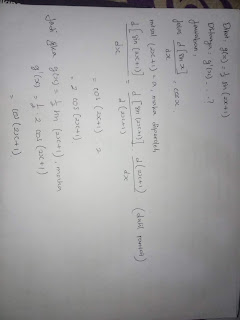 Diket g(x) = 1/2 sin (2x+1)
Ditanya g'(x) ... ?
Jawaban,
jika d[sin x]/dx = cos x
misal (2x+1) = u, maka diperoleh
d[sin (2x+1)]/dx = d[sin (2x+1)]/d(2x+1) · d(2x+1)/dx (dalil rantai)
= cos (2x+1) 2
= 2 cos (2x+1)
Jadi jika g(x) = 1/2 sin (2x+1), maka
g'(x) = 1/2 2 cos (2x+1)
= cos (2x+1)